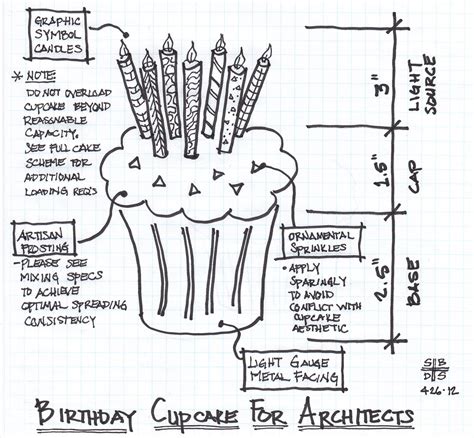 GRAPHIC
SYMBOL
CANDLES
* NOTE:
DO NOT OVERLOAD
CUPCAKE BEYOND
REASONABLE
CAPACITY.
SEE FULL CAKE
SCHEME FOR
ADDITIONAL
LOADING REQ'S
ARTISAN
FROSTING
- PLEASE SEE
MIXING SPECS
TO ACHIEVE
OPTIMAL SPREADING
CONSISTENCY
ORNAMENTAL
SPRINKLES
• APPLY
SPARINGLY
TO AVOID
CONFLICT WITH
CUPCAKE
AESTHETIC
LIGHT GAUGE
METAL FACING
3"
LIGHT
SOURCE
1.5"
CAP
2.5"
BASE
S B
D S
4.26.12
BIRTHDAY CUPCAKE FOR ARCHITECTS